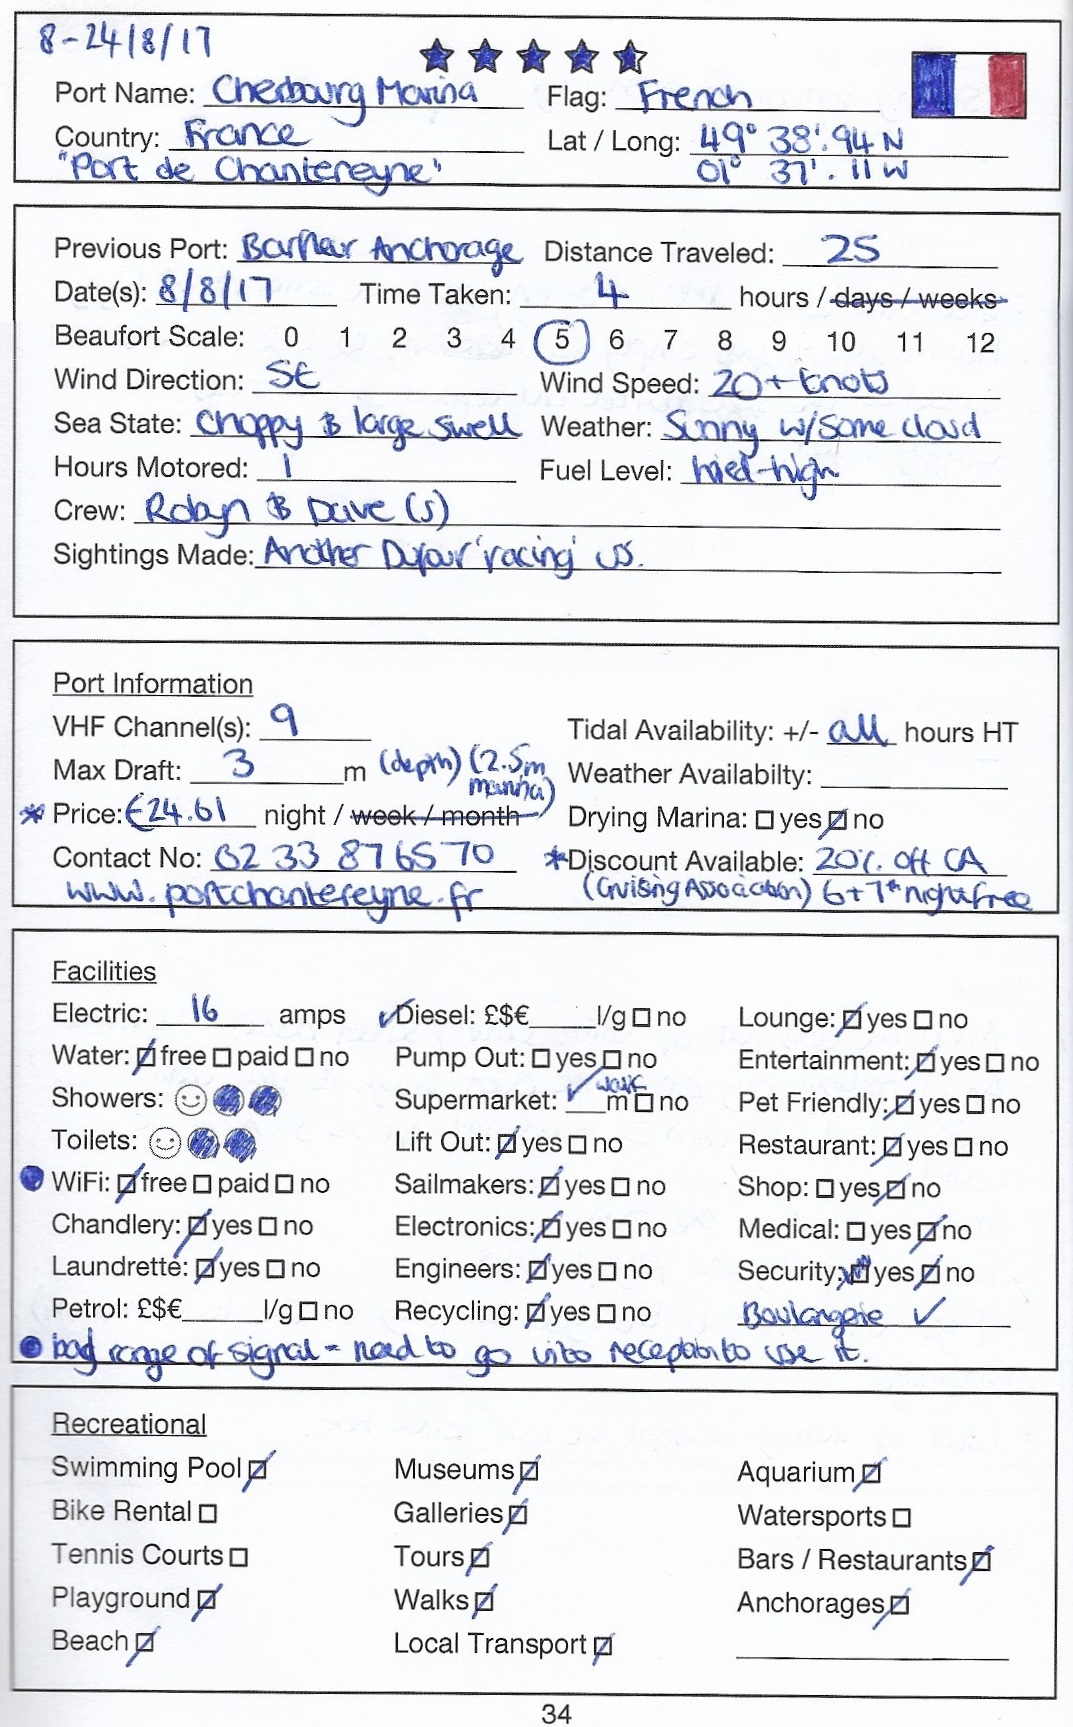 8-24/8/17
Port Name: Cherbourg Marina Flag: French
Country: France Lat / Long: 49° 38'.94 N
"Port de Chantereyne" 01° 37'.11 W
Previous Port: Barfleur Anchorage Distance Traveled: 25
Date(s): 8/8/17 Time Taken: 4 hours / days / weeks
Beaufort Scale: 0 1 2 3 4 5 6 7 8 9 10 11 12
Wind Direction: SE Wind Speed: 20+ knots
Sea State: Choppy & large swell Weather: Sunny w/some cloud
Hours Motored: 1 Fuel Level: med-high
Crew: Robyn & Dave (S)
Sightings Made: Another Dufour 'racing' us.
Port Information
VHF Channel(s): 9 Tidal Availability: +/- all hours HT
Max Draft: 3 m (depth) (2.5m marina) Weather Availabilty:
* Price: €24.61 night / week / month Drying Marina: yes no
Contact No: 02 33 87 65 70 *Discount Available: 20% off CA
www.portchantereyne.fr (Cruising Association) 6+7th night free
Facilities
Electric: 16 amps Diesel: £$€ l/g no Lounge: yes no
Water: free paid no Pump Out: yes no Entertainment: yes no
Showers: Supermarket: walk m no Pet Friendly: yes no
Toilets: Lift Out: yes no Restaurant: yes no
WiFi: free paid no Sailmakers: yes no Shop: yes no
Chandlery: yes no Electronics: yes no Medical: yes no
Laundrette: yes no Engineers: yes no Security: yes no
Petrol: £$€ l/g no Recycling: yes no Boulangerie ✓
bad range of signal - need to go into reception to use it.
Recreational
Swimming Pool Museums Aquarium
Bike Rental Galleries Watersports
Tennis Courts Tours Bars / Restaurants
Playground Walks Anchorages
Beach Local Transport
34